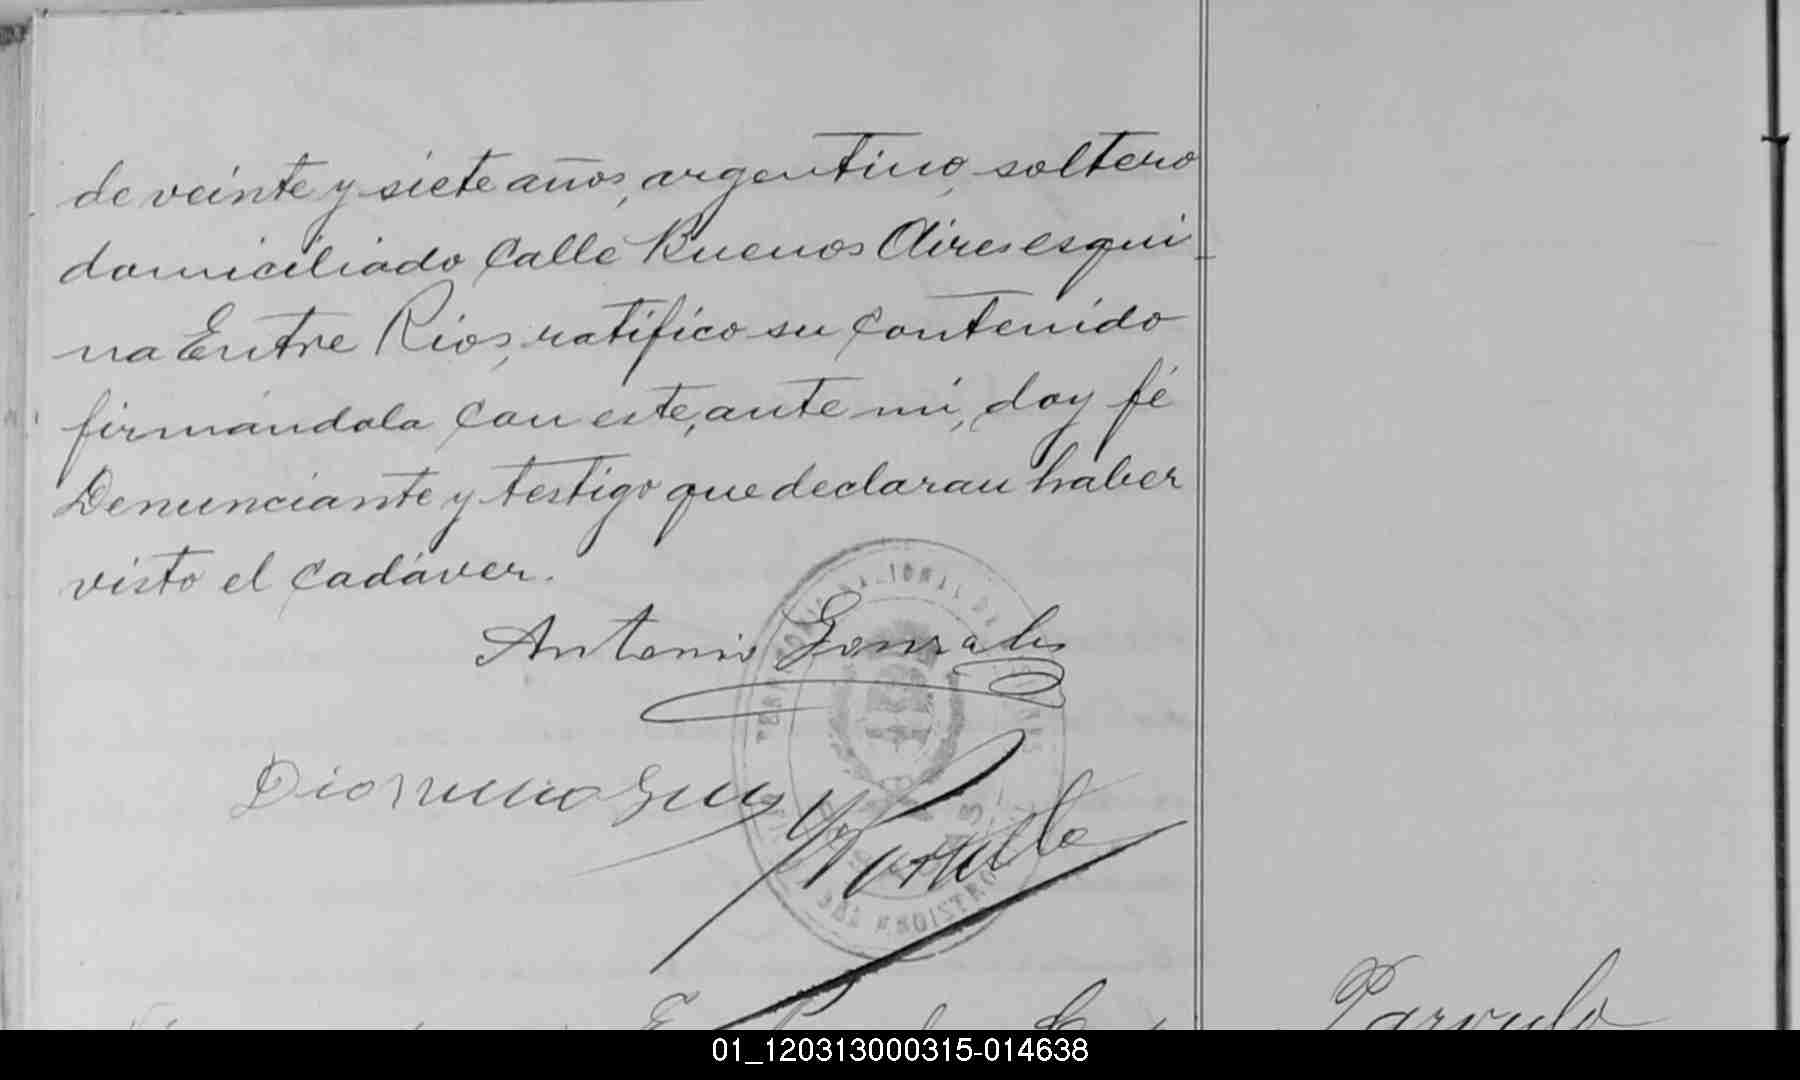 de veinte y siete años, argentino, soltero
domiciliado calle Buenos Aires esqui-
na Entre Rios, ratifico su contenido
firmándola con este, ante mi, doy fé
Denunciante y testigo que declaran haber
visto el cadáver.
Antonio Gonzales
Párvulo
01_120313000315-014638